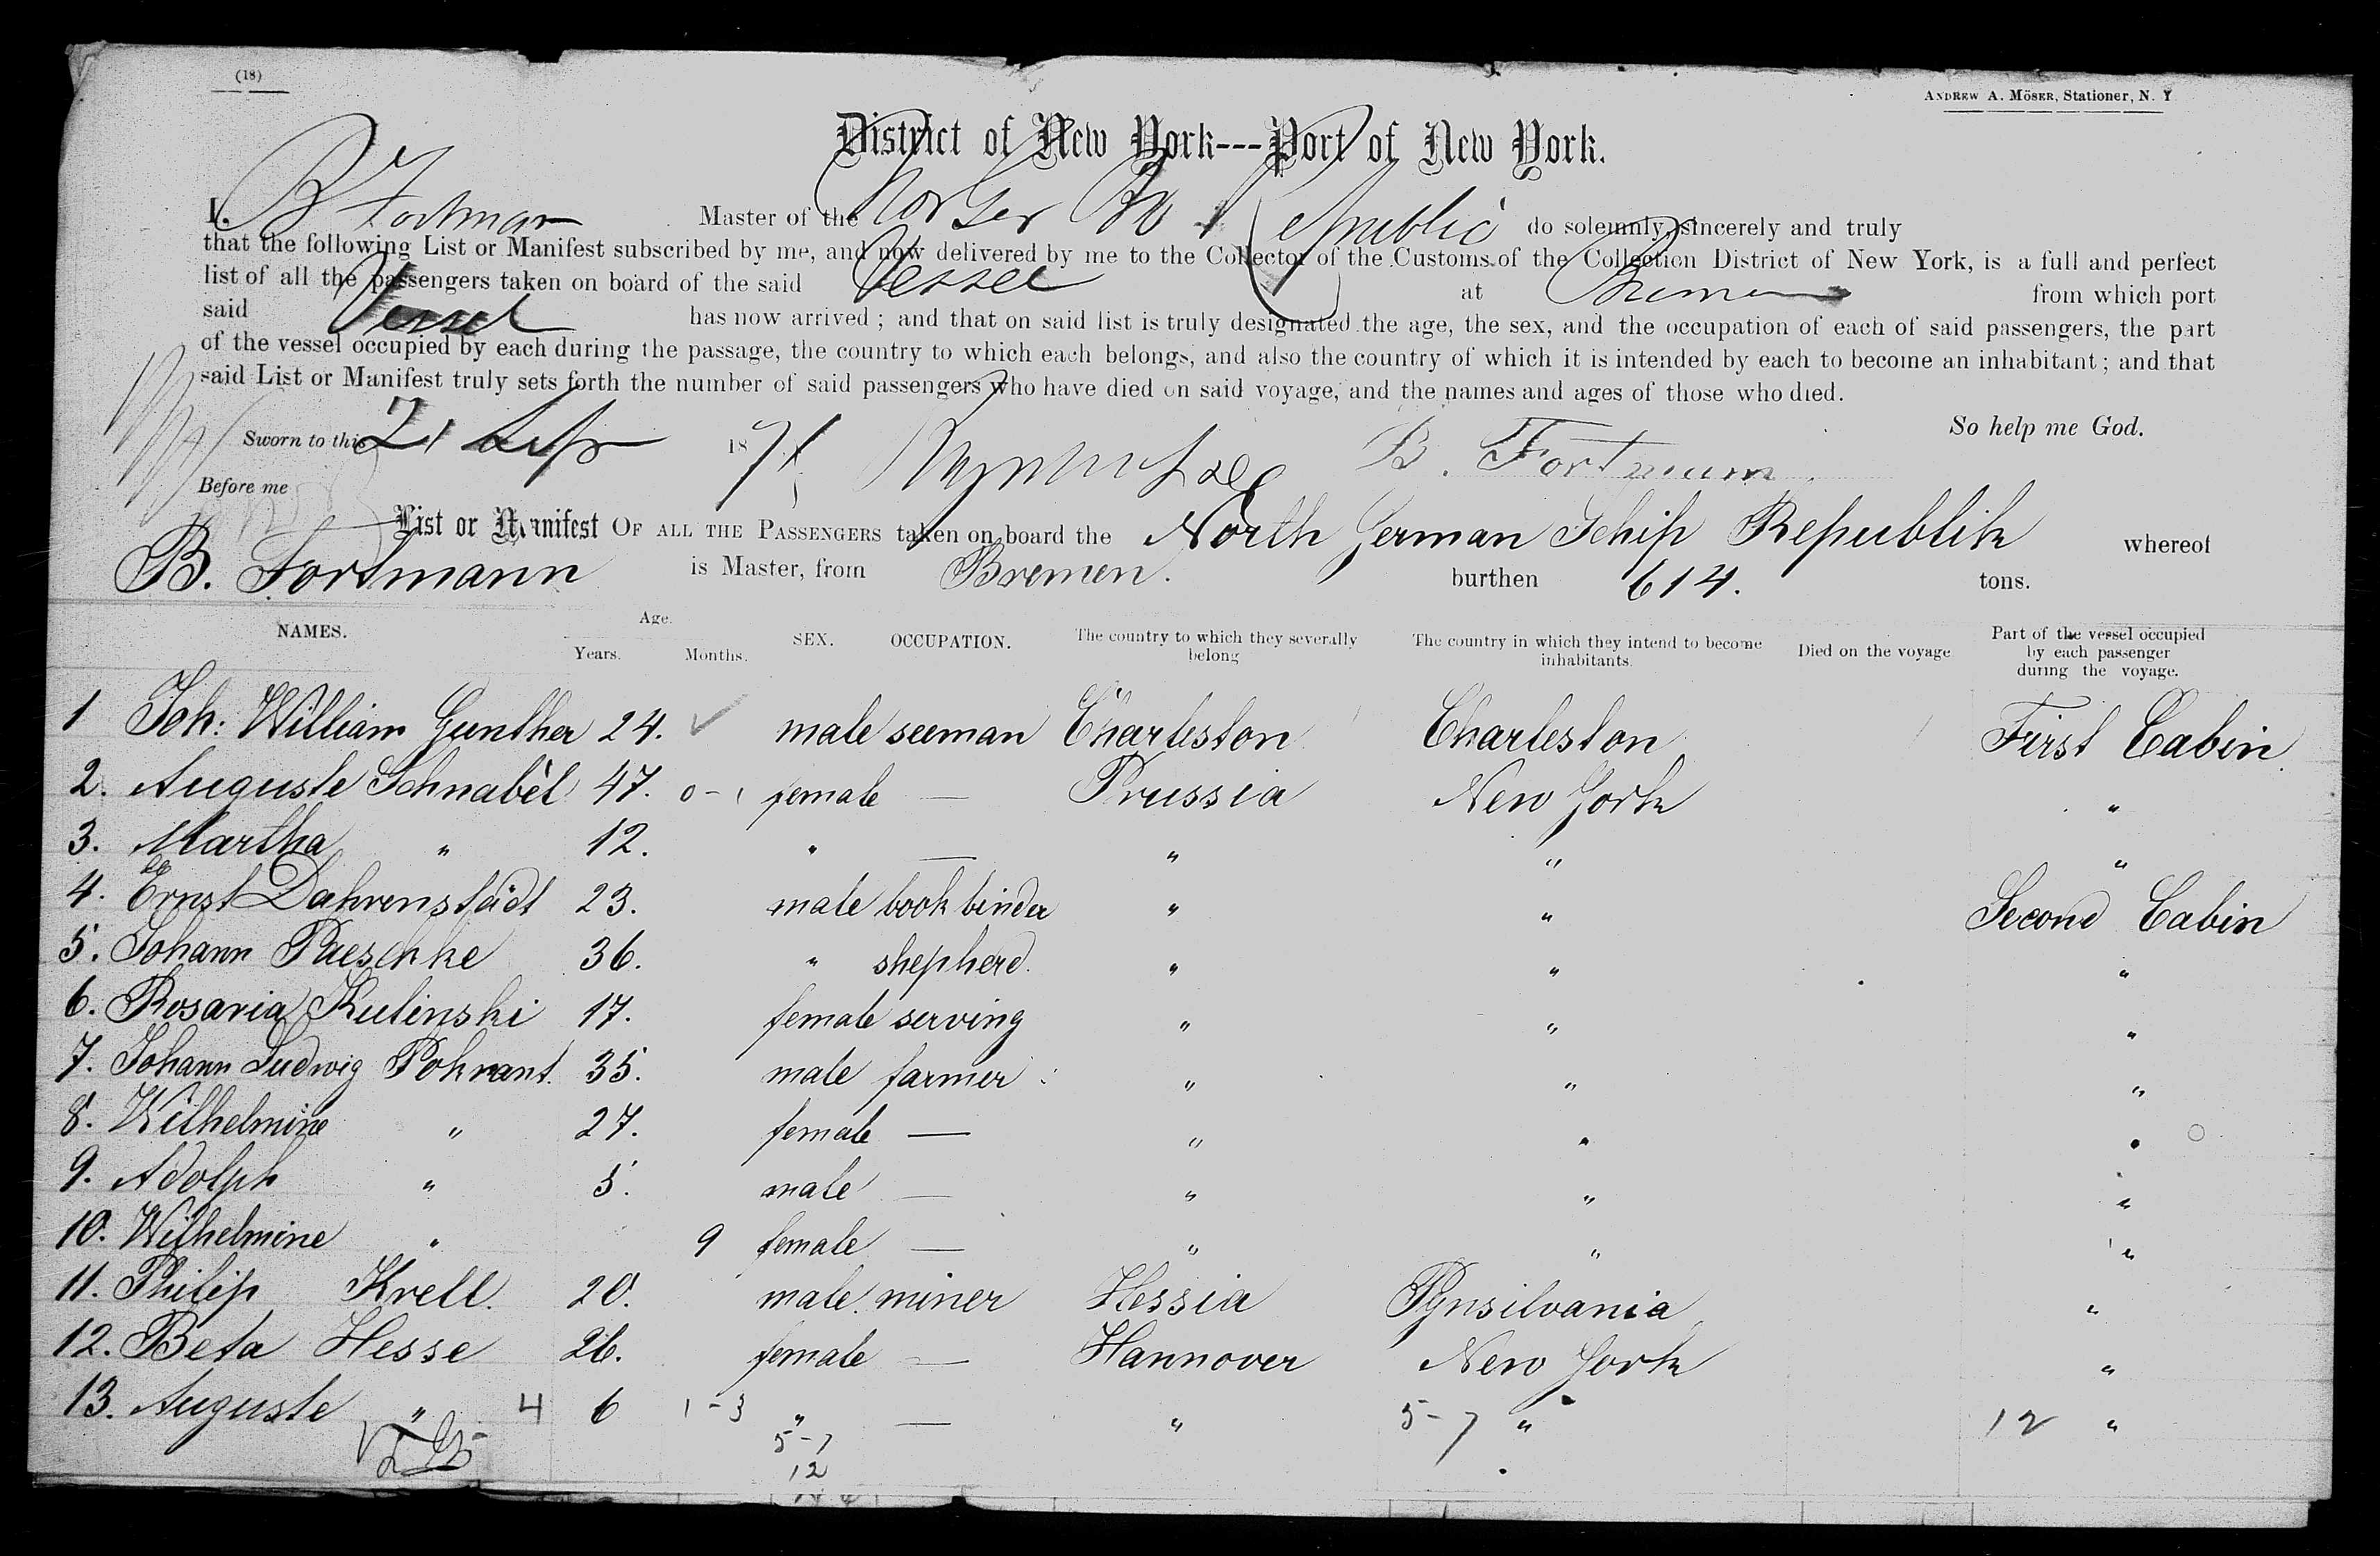 (18)
ANDREW A. MÖSER, Stationer, N. Y
District of New York---Port of New York.
I. B Fortman Master of the Nor Ger Republic do solemnly, sincerely and truly
that the following List or Manifest subscribed by me, and now delivered by me to the Collector of the Customs of the Collection District of New York, is a full and perfect
list of all the passengers taken on board of the said Vessel at Bremen from which port
said Vessel has now arrived ; and that on said list is truly designated the age, the sex, and the occupation of each of said passengers, the part
of the vessel occupied by each during the passage, the country to which each belongs, and also the country of which it is intended by each to become an inhabitant ; and that
said List or Manifest truly sets forth the number of said passengers who have died on said voyage, and the names and ages of those who died.
So help me God.
Sworn to this 21 Sep 1871 B. Fortmann
Before me
List or Manifest OF ALL THE PASSENGERS taken on board the North German Schip Republik whereof
B. Fortmann is Master, from Bremen. burthen 614. tons.
NAMES. Age. Years. Months. SEX. OCCUPATION. The country to which they severally belong The country in which they intend to become inhabitants. Died on the voyage Part of the vessel occupied by each passenger during the voyage.
1 Joh: William Gunther 24. ✓ male seeman Charleston Charleston First Cabin
2. Auguste Schnabel 47. 0-1 female — Prussia New York "
3. Martha " 12. " — " " "
4. Ernst Dahrenstädt 23. male book binder " " Second Cabin
5. Johann Paeschke 36. " shepherd. " " "
6. Rosaria Kulinski 17. female serving " " "
7. Johann Ludwig Pohnant. 35. male farmer " " "
8. Wilhelmine " 27. female — " " "
9. Adolph " 5. male — " " "
10. Wilhelmine " 9 female — " " "
11. Philip Krell. 20. male miner Hessia Pynsilvania "
12. Beta Hesse 26. female — Hannover New York "
13. Auguste " 4 6 1-3 " — " 5-7 " 12 "
5-7
12